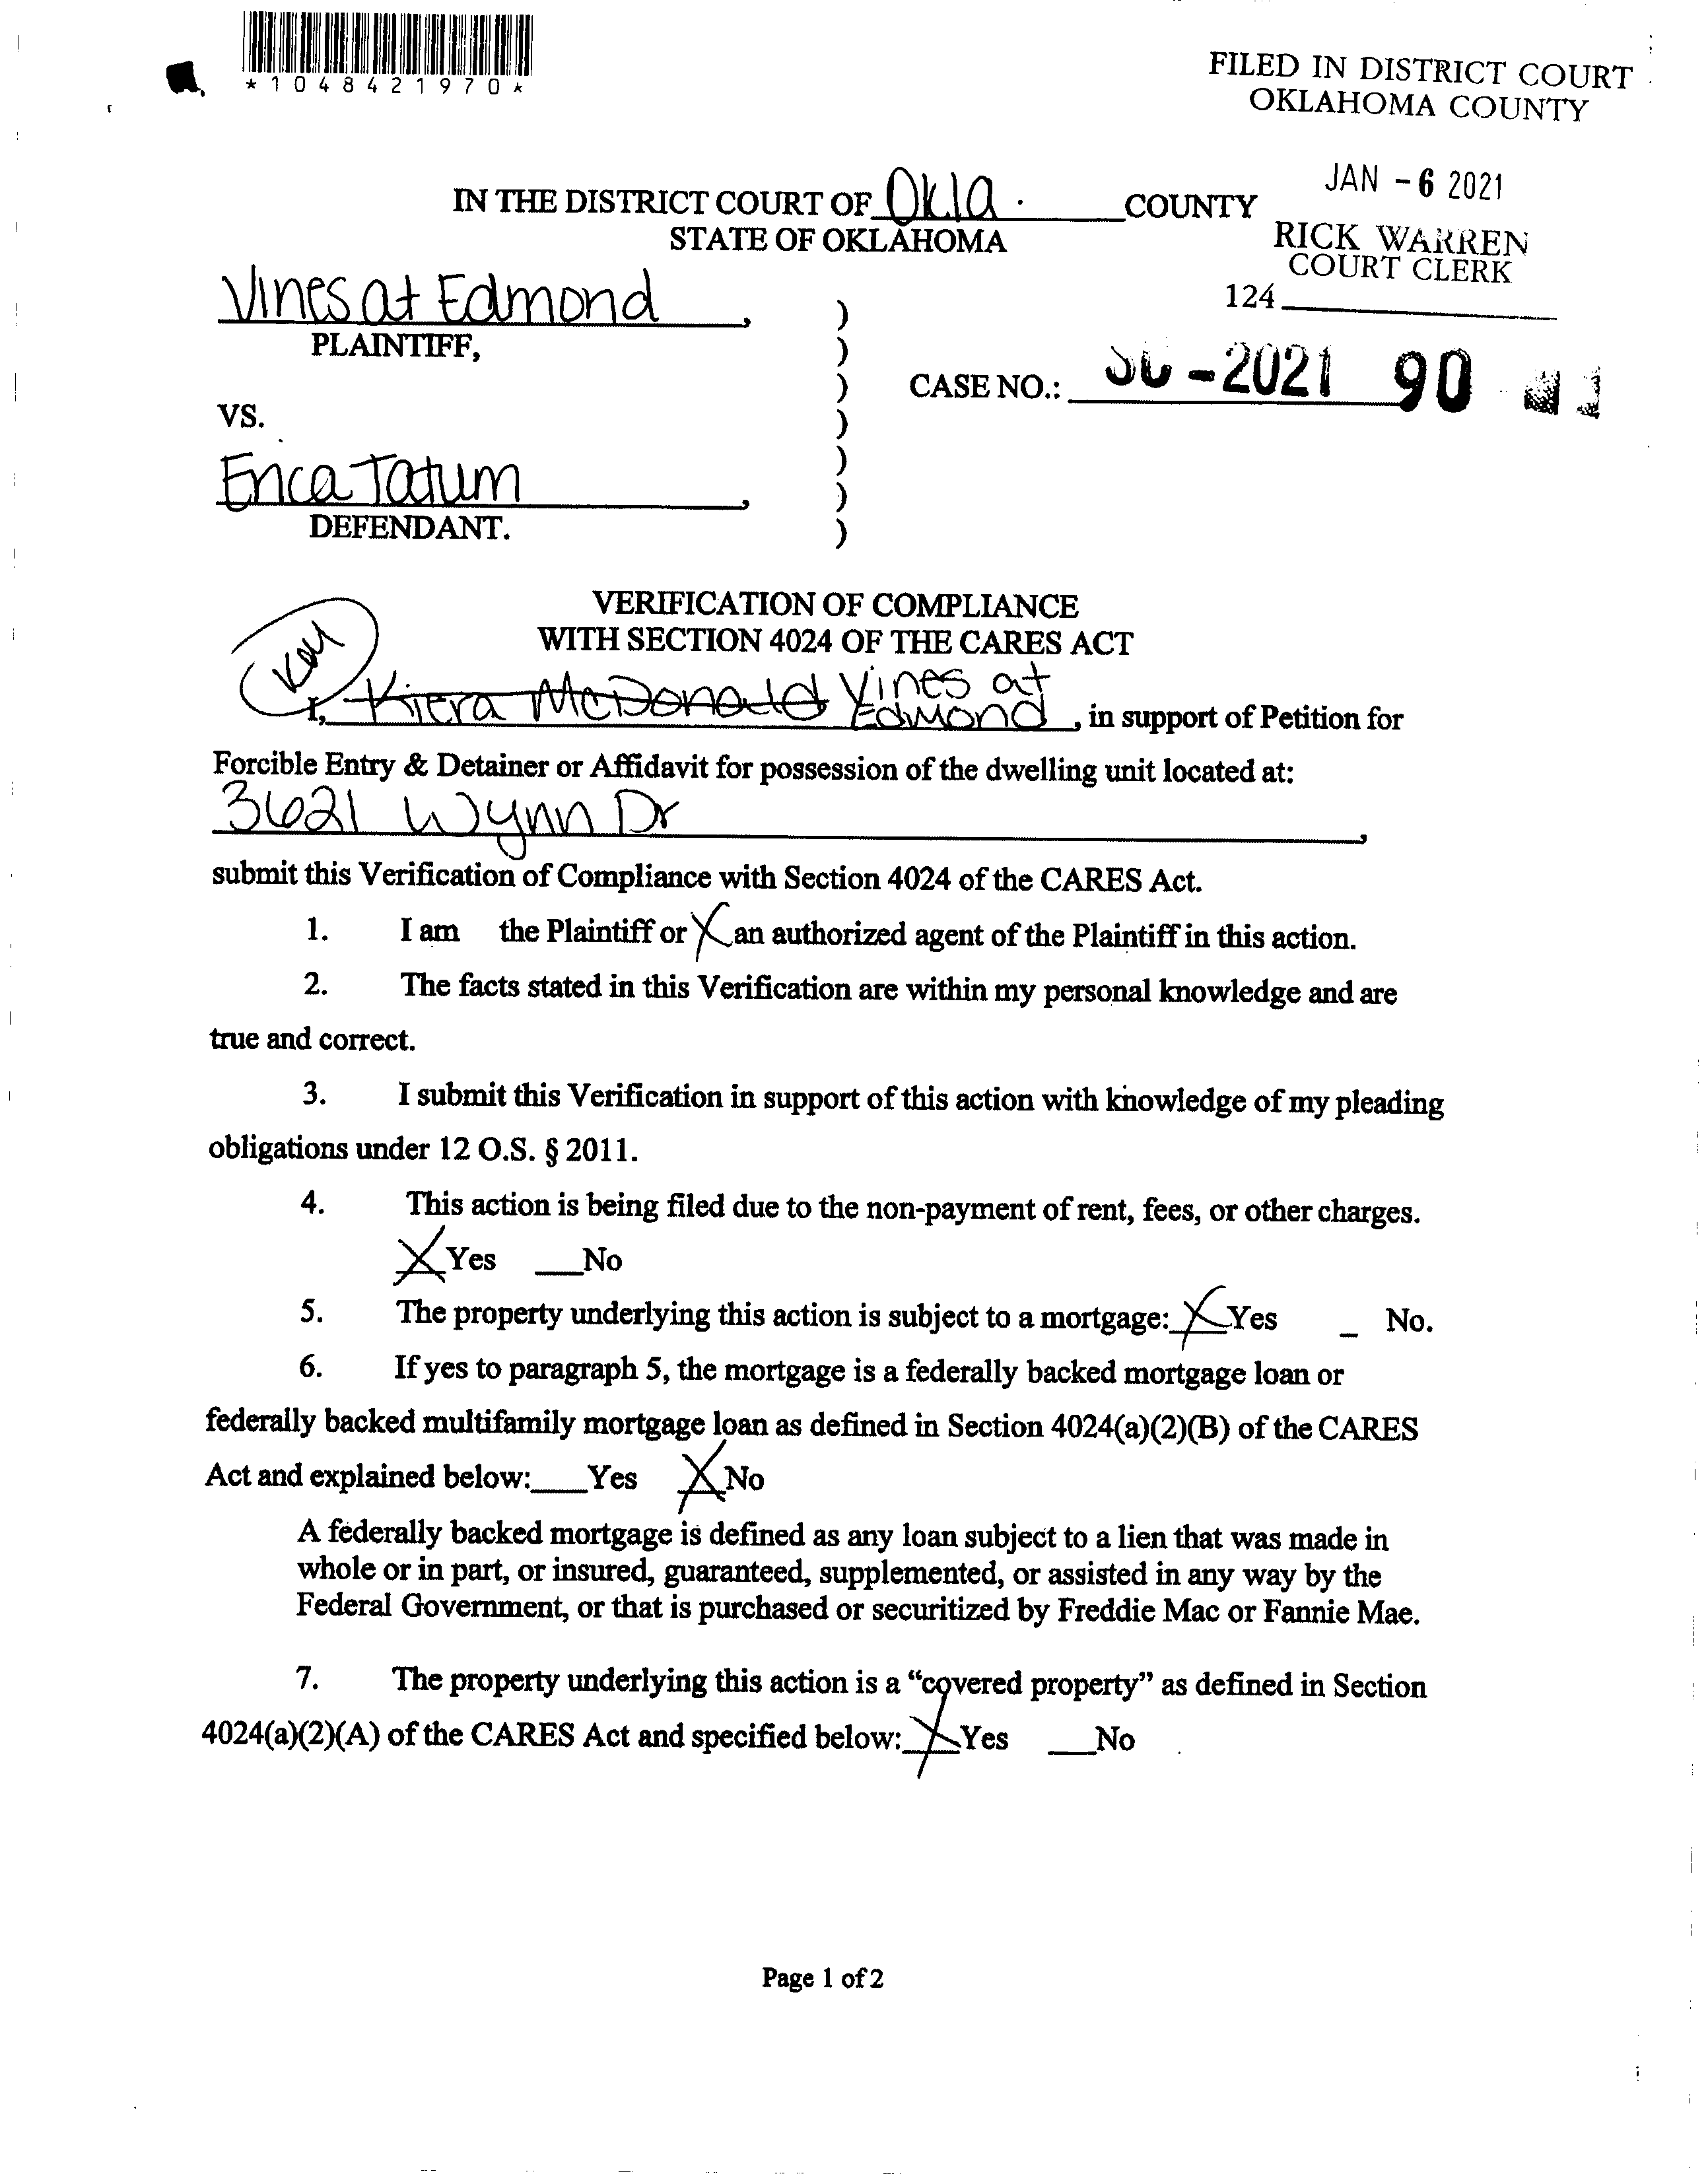 *1048421970*
FILED IN DISTRICT COURT
OKLAHOMA COUNTY
JAN - 6 2021
RICK WARREN
COURT CLERK
124
IN THE DISTRICT COURT OF Okla. COUNTY
STATE OF OKLAHOMA
Vines at Edmond,
PLAINTIFF,
)
)
)
)
)
)
)
CASE NO.: SC-2021 90
VS.
Erica Tatum,
DEFENDANT.
VERIFICATION OF COMPLIANCE
WITH SECTION 4024 OF THE CARES ACT
KM
I, Kiera McDonald Vines at Edmond, in support of Petition for
Forcible Entry & Detainer or Affidavit for possession of the dwelling unit located at:
3621 Wynn Dr,
submit this Verification of Compliance with Section 4024 of the CARES Act.
1. I am the Plaintiff or X an authorized agent of the Plaintiff in this action.
2. The facts stated in this Verification are within my personal knowledge and are
true and correct.
3. I submit this Verification in support of this action with knowledge of my pleading
obligations under 12 O.S. § 2011.
4. This action is being filed due to the non-payment of rent, fees, or other charges.
X Yes __No
5. The property underlying this action is subject to a mortgage: X Yes _ No.
6. If yes to paragraph 5, the mortgage is a federally backed mortgage loan or
federally backed multifamily mortgage loan as defined in Section 4024(a)(2)(B) of the CARES
Act and explained below:__Yes X No
A federally backed mortgage is defined as any loan subject to a lien that was made in
whole or in part, or insured, guaranteed, supplemented, or assisted in any way by the
Federal Government, or that is purchased or securitized by Freddie Mac or Fannie Mae.
7. The property underlying this action is a “covered property” as defined in Section
4024(a)(2)(A) of the CARES Act and specified below: X Yes __No
Page 1 of 2